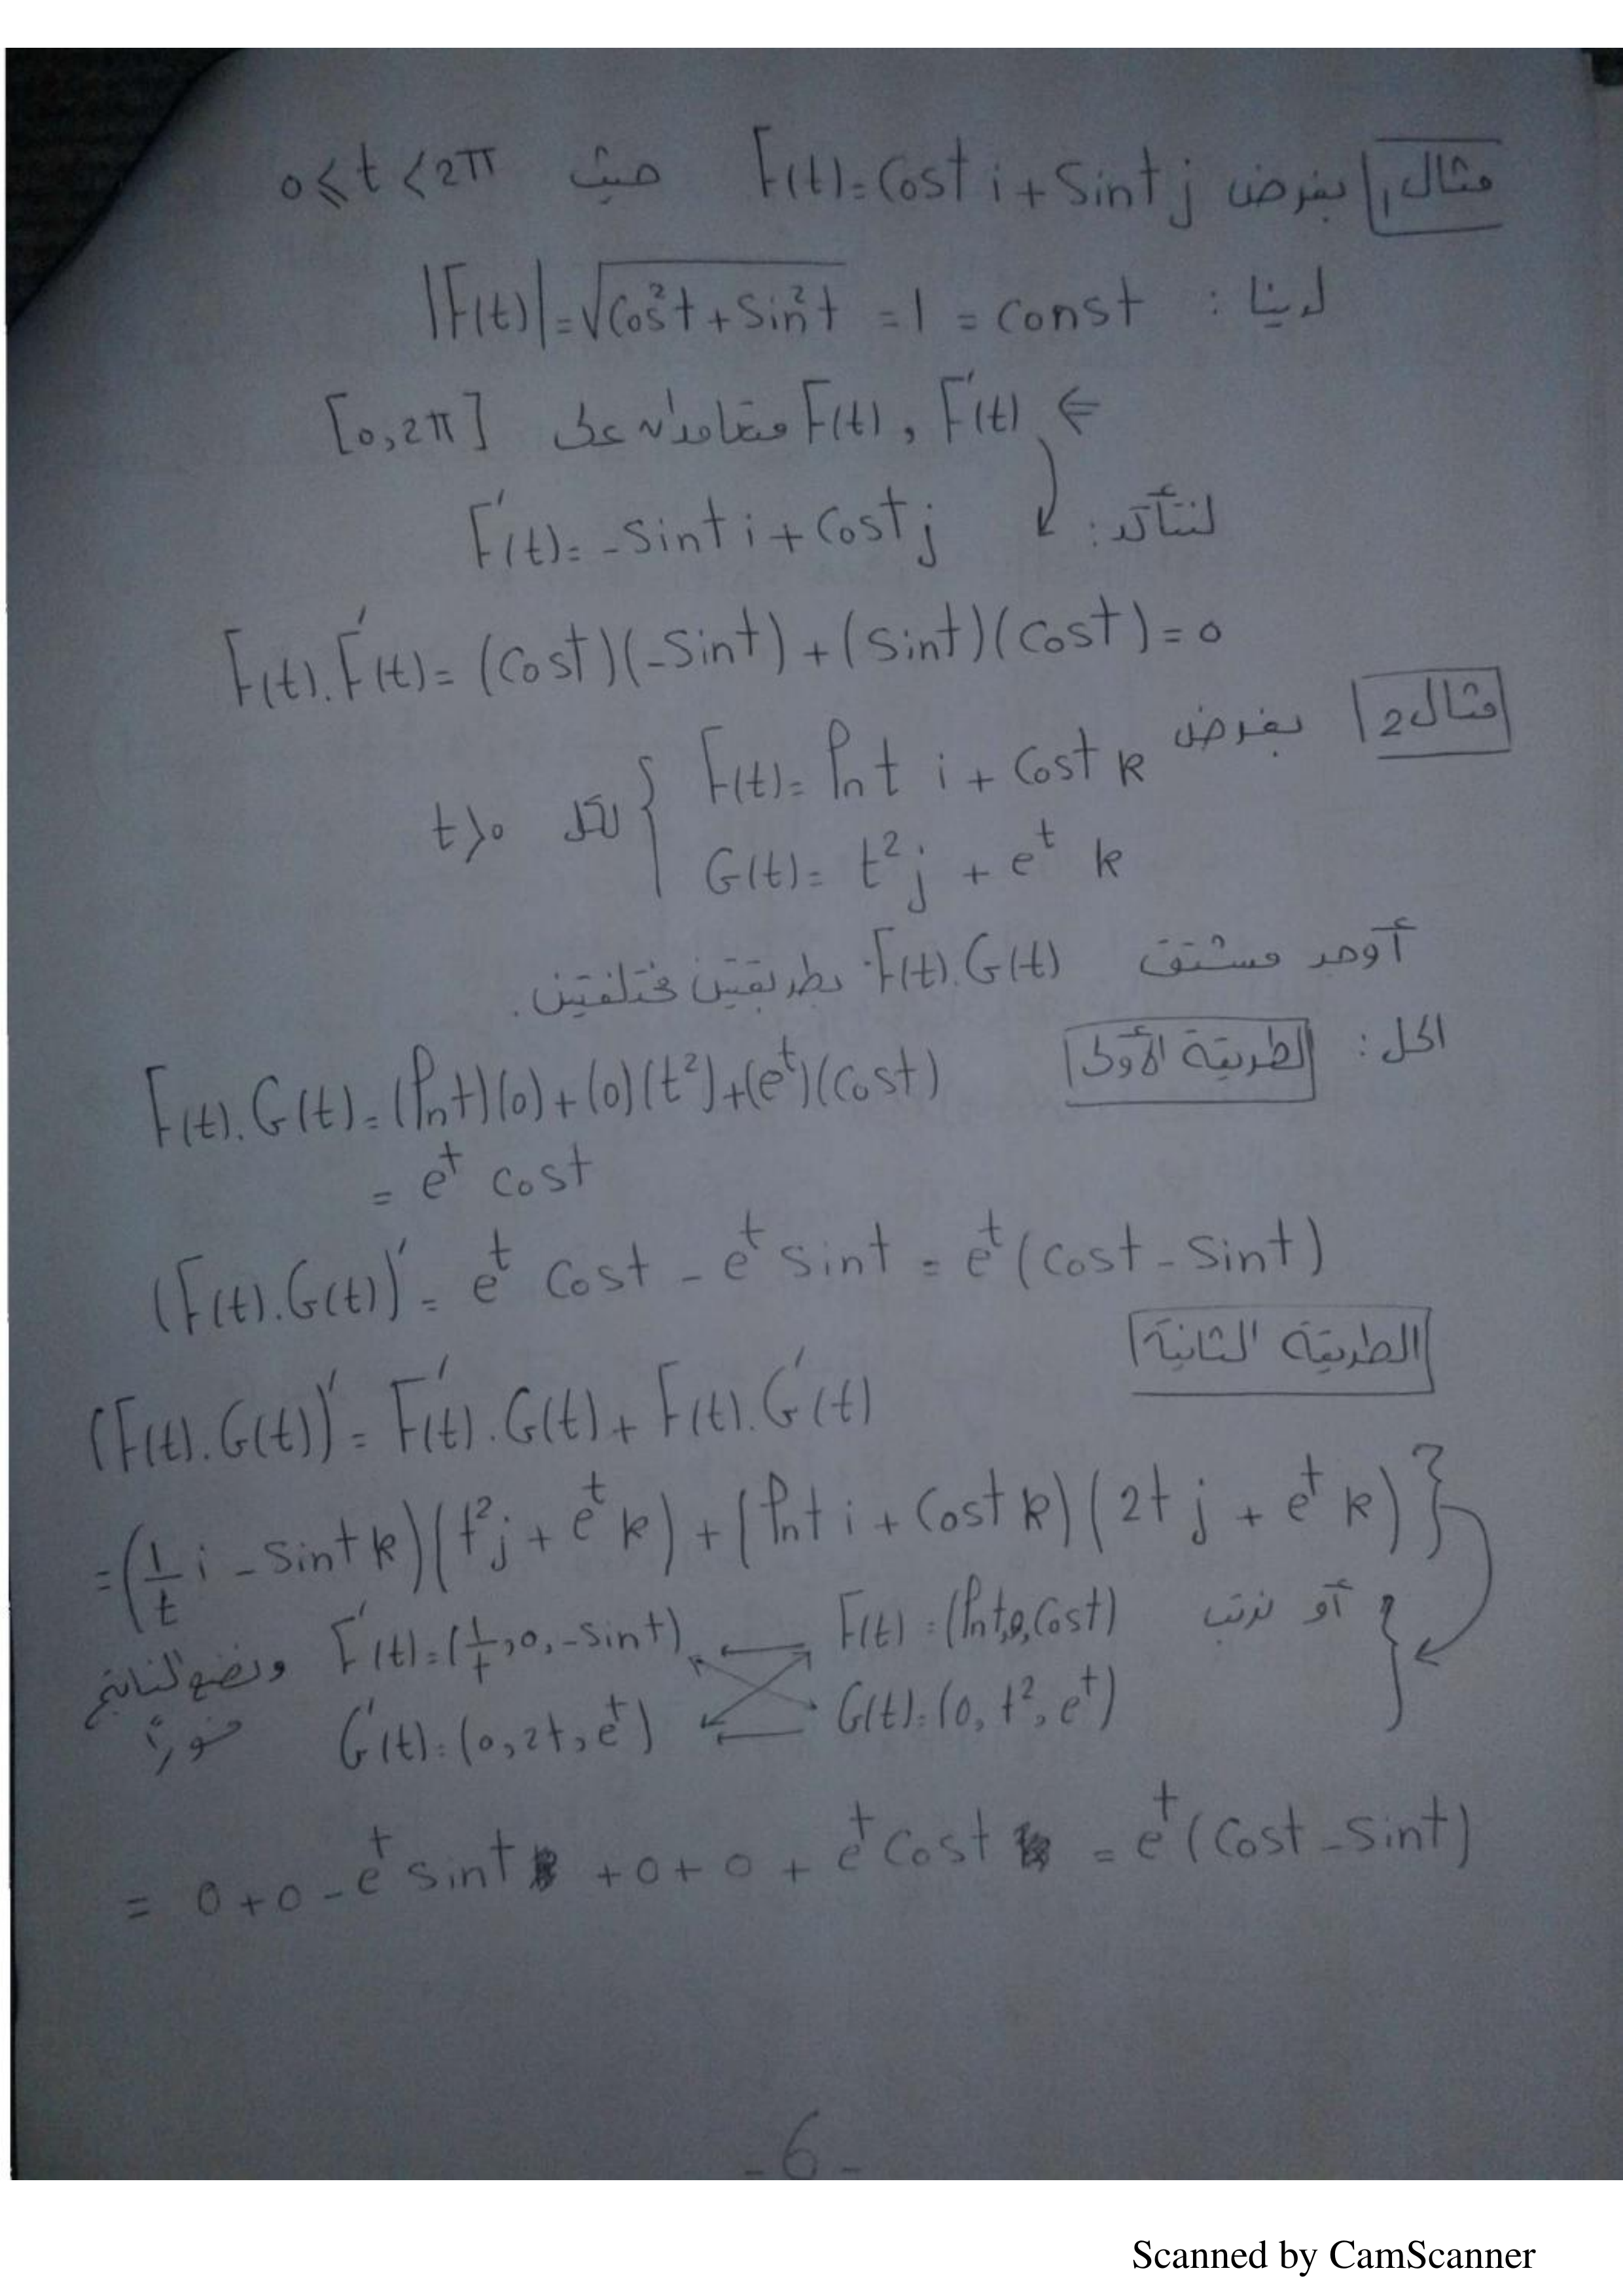 مثال 1 بفرض F(t) = Cost i + Sint j حيث 0 ≤ t < 2π
لدينا : |F(t)| = √(Cos²t + Sin²t) = 1 = const
⇐ F(t) , F'(t) متعامدان على [0, 2π]
لنتأكد : F'(t) = -Sint i + Cost j
F(t). F'(t) = (Cost)(-Sint) + (Sint)(Cost) = 0
مثال 2 بفرض F(t) = ln t i + Cost k
G(t) = t² j + e^t k } لكل t > 0
أوجد مشتق F(t). G(t) بطريقتين مختلفتين.
الحل : الطريقة الأولى
F(t). G(t) = (ln t)(0) + (0)(t²) + (e^t)(Cost)
= e^t Cost
(F(t). G(t))' = e^t Cost - e^t Sint = e^t (Cost - Sint)
الطريقة الثانية
(F(t). G(t))' = F'(t). G(t) + F(t). G'(t)
= (1/t i - Sint k)(t² j + e^t k) + (ln t i + Cost k)(2t j + e^t k) }
أو نرتب F(t) = (ln t, 0, Cost) F'(t) = (1/t, 0, -Sint) ونضع الناتج
G(t) = (0, t², e^t) G'(t) = (0, 2t, e^t) فوراً
= 0 + 0 - e^t Sint + 0 + 0 + e^t Cost = e^t (Cost - Sint)
- 6 -
Scanned by CamScanner